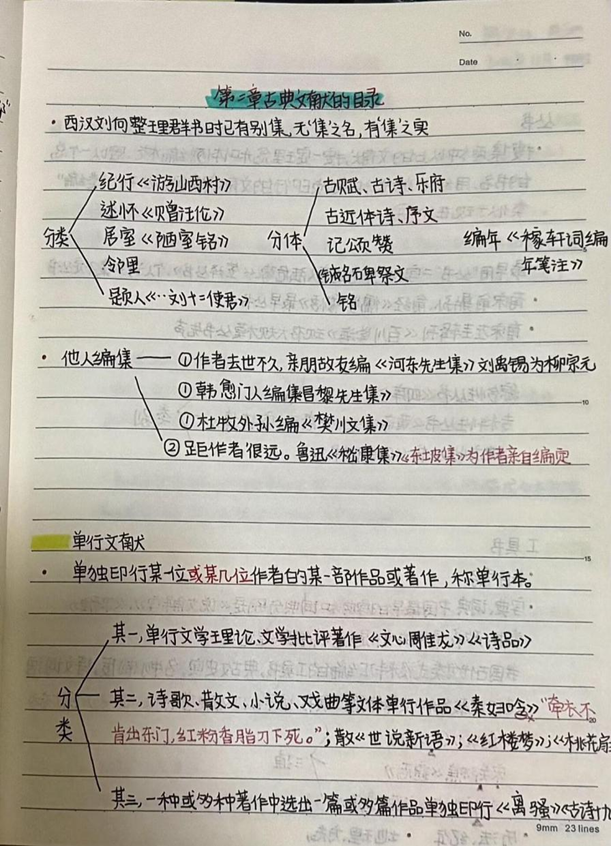 No.
Date
第二章古典文献的目录
·西汉刘向整理群书时已有别集,无“集”之名,有“集”之实
分类
纪行《游山西村》
述怀《赠汪伦》
居室《陋室铭》
邻里
题人《…刘十二使君》
分体
古赋、古诗、乐府
古近体诗、序文
记颂赞
箴铭碑祭文
铭
编年《稼轩词编
年笺注》
·他人编集——①作者去世不久,亲朋故友编《河东先生集》刘禹锡为柳宗元
①韩愈门人编集昌黎先生集》
①杜牧外孙编《樊川文集》
②距作者很远。鲁迅《嵇康集》《东坡集》为作者亲自编定
单行文献
·单独印行某一位或某几位作者的某一部作品或著作,称单行本。
分类
其一,单行文学理论、文学批评著作《文心雕龙》《诗品》
其二,诗歌、散文、小说、戏曲等文体单行作品《秦妇吟》
肯出东门,红粉香脂刀下死。”;散《世说新语》;《红楼梦》;《桃花扇
其三,一种或多种著作中选出一篇或多篇作品单独印行《离骚》《古诗十九
5
10
15
20
9mm 23 lines